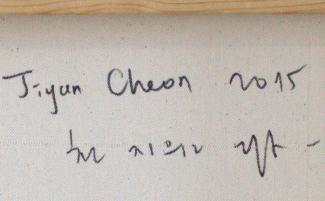 Jiyun Cheon 2015
천 지윤